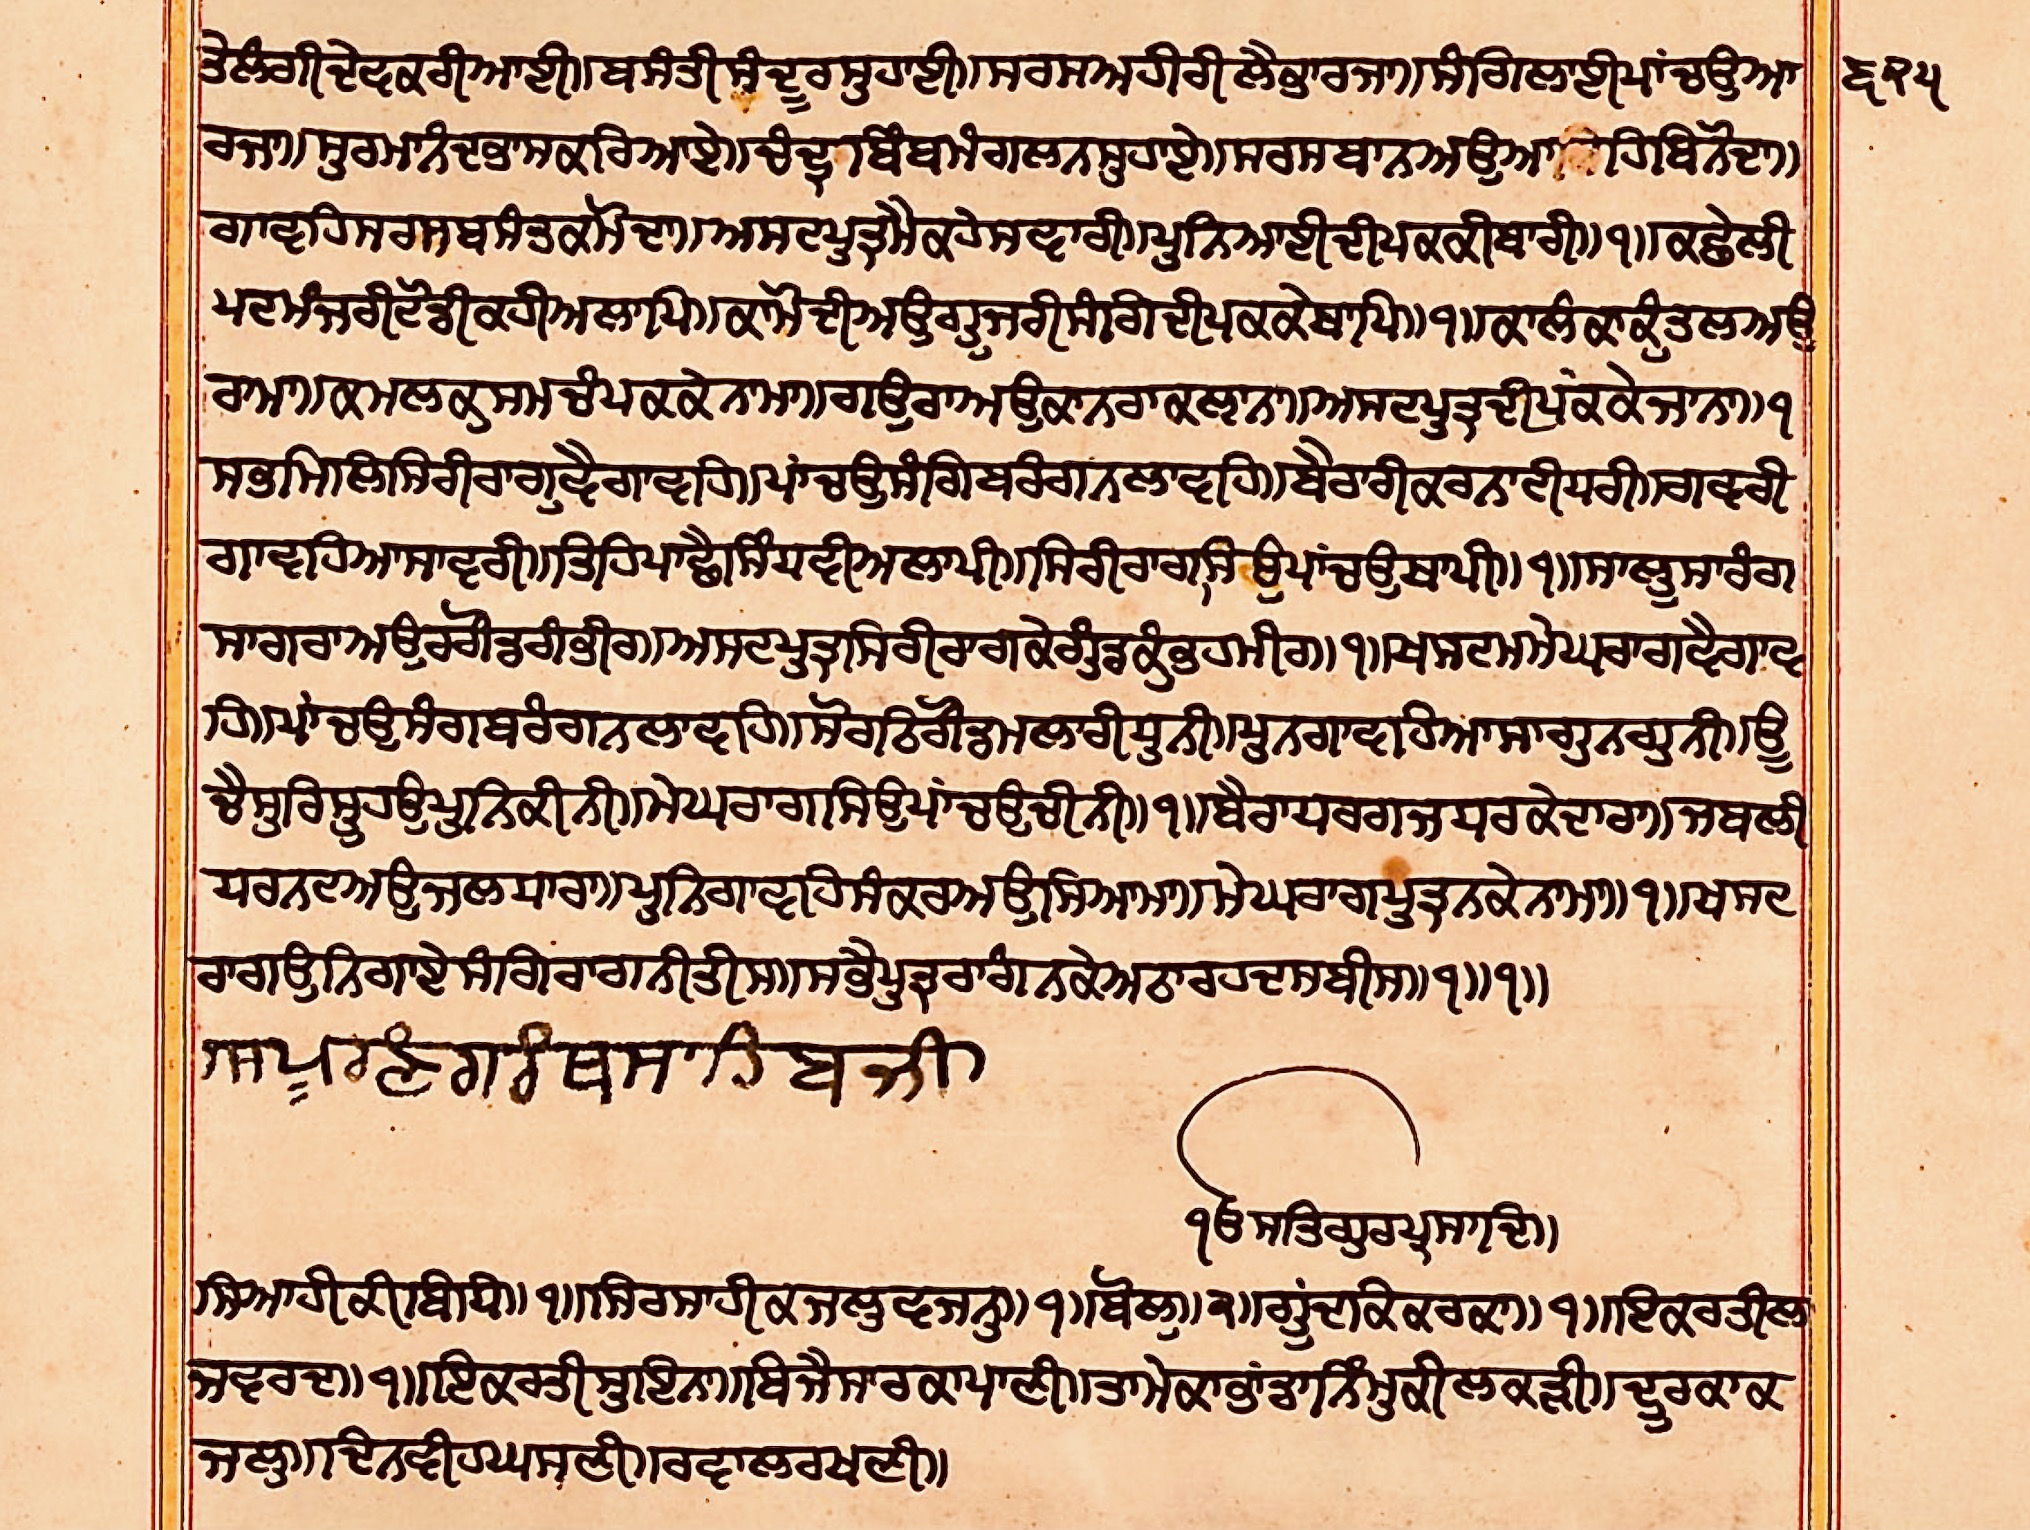 ਤੇਲੰਗੀਦੇਵਕਰੀਆਈ॥ਬਸੰਤੀਸੰਦੂਰਸੁਹਾਈ॥ਸਰਸਅਹੀਰੀਲੈਭਾਰਜਾ॥ਸੰਗਿਲਾਈਪਾਂਚਉਆ ੬੧੫
ਰਜਾ॥ਸੁਰਮਾਨੰਦਭਾਸਕਰਿਆਏ॥ਚੰਦ੍ਰਬਿੰਬਮੰਗਲਨਸੁਹਾਏ॥ਸਰਸਬਾਨਅਉਆ ਹਿਬਿਨੋਦਾ॥
ਗਾਵਹਿਸਰਸਬਸੰਤਕਮੋਦਾ॥ਅਸਟਪੁਤ੍ਰਮੈਕਹੇਸਵਾਰੀ॥ਪੁਨਿਆਈਦੀਪਕਕੀਬਾਰੀ॥੧॥ਕਛੇਲੀ
ਪਟਮੰਜਰੀਟੋਡੀਕਹੀਅਲਾਪਿ॥ਕਾਮੋਦੀਅਉਗੂਜਰੀਸੰਗਿਦੀਪਕਕੇਥਾਪਿ॥੧॥ਕਾਲੰਕਾਕੁੰਤਲਅਉ
ਰਾਮਾ॥ਕਮਲਕੁਸਮਚੰਪਕਕੇਨਾਮਾ॥ਗਉਰਾਅਉਕਾਨਰਾਕਲ੍ਯਾਨਾ॥ਅਸਟਪੁਤ੍ਰਦੀਪੰਕਕੇਜਾਨਾ॥੧
ਸਭਮਿਲਿਸਿਰੀਰਾਗੁਵੈਗਾਵਹਿ॥ਪਾਂਚਉਸੰਗਿਬਰੰਗਨਲਾਵਹਿ॥ਬੈਰਾਰੀਕਰਨਾਟੀਧਰੀ॥ਗਵਰੀ
ਗਾਵਹਿਆਸਾਵਰੀ॥ਤਿਹਿਪਾਛੈਸਿੰਧਵੀਅਲਾਪੀ॥ਸਿਰੀਰਾਗਸਿਉਪਾਂਚਉਥਾਪੀ॥੧॥ਸਾਲੂਸਾਰੰਗ
ਸਾਗਰਾਅਉਰਗੋਡਗੰਭੀਰ॥ਅਸਟਪੁਤ੍ਰਸਿਰੀਰਾਗਕੇਗੁੰਡਕੁੰਭਹਮੀਰ॥੧॥ਖਸਟਮਮੇਘਰਾਗਵੈਗਾਵ
ਹਿ॥ਪਾਂਚਉਸੰਗਬਰੰਗਨਲਾਵਹਿ॥ਸੋਰਠਿਗੋਂਡਮਲਾਰੀਧੁਨੀ॥ਪੁਨਗਾਵਹਿਆਸਾਗੁਨਗੁਨੀ॥ਊ
ਚੈਸੁਰਿਸੂਹਉਪੁਨਿਕੀਨੀ॥ਮੇਘਰਾਗਸਿਉਪਾਂਚਉਚੀਨੀ॥੧॥ਬੈਰਾਧਰਗਜਧਰਕੇਦਾਰਾ॥ਜਬਲੀ
ਧਰਨਟਅਉਜਲਧਾਰਾ॥ਪੁਨਿਗਾਵਹਿਸੰਕਰਅਉਸਿਆਮਾ॥ਮੇਘਰਾਗਪੁਤ੍ਰਨਕੇਨਾਮਾ॥੧॥ਖਸਟ
ਰਾਗਉਨਿਗਾਏਸੰਗਿਰਾਗਨੀਤੀਸ॥ਸਭੈਪੁਤ੍ਰਰਾਗੰਨਕੇਅਠਾਰਹਦਸਬੀਸ॥੧॥੧॥
ੴਸਤਿਗੁਰਪ੍ਰਸਾਦਿ॥
ਸਿਆਹੀਕੀਬਿਧਿ॥੧॥ਸਿਰਸਾਹੀਕਜਲੁਵਜਨੁ॥੧॥ਬੋਲੁ॥੨॥ਗੂੰਦਕਿਕਰਕਾ॥੧॥ਇਕਰਤੀਲਾ
ਜਵਰਦ॥੧॥ਇਕਰਤੀਸੁਇਨਾ॥ਬਿਜੈਸਾਰਕਾਪਾਣੀ॥ਤਾਮੇਕਾਭਾਂਡਾਨਿੰਮੁਕੀਲਕੜੀ॥ਦੂਰਕਾਕ
ਜਲੁ॥ਦਿਨਵੀਹਘਸਣੀ॥ਰਵਾਲਰਖਣੀ॥